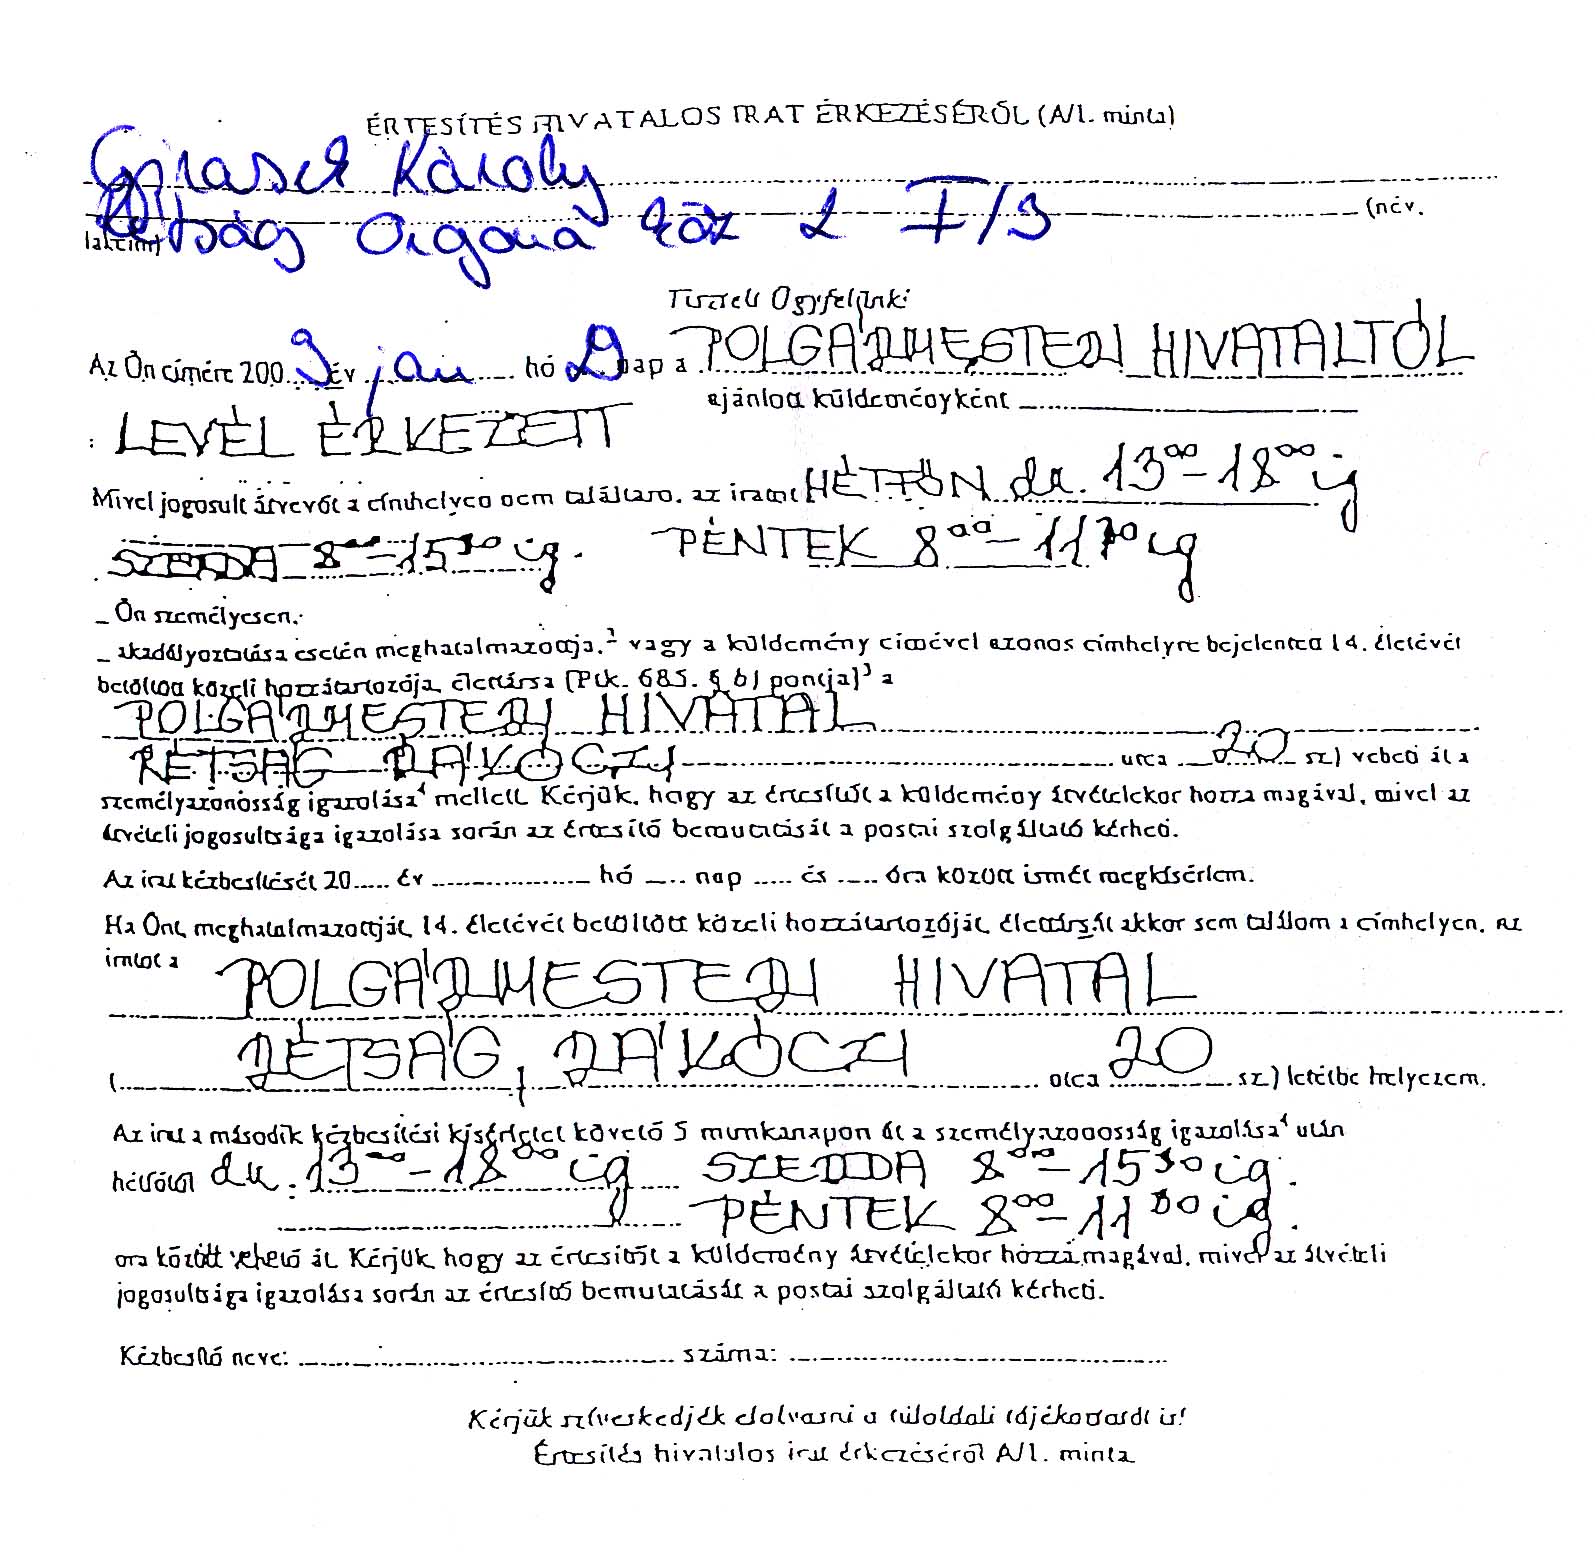 ÉRTESÍTÉS HIVATALOS IRAT ÉRKEZÉSÉRŐL (A/1. minta)
Károly
Rétság Orgona köz 2 I/3 (név,
lakcím)
Tisztelt Ügyfelünk!
Az Ön címére 2009 év jan hó 29 nap a POLGÁRMESTERI HIVATALTÓL
ajánlott küldeményként
LEVÉL ÉRKEZETT
Mivel jogosult átvevőt a címhelyen nem találtam, az iratot HÉTFŐN du. 13⁰⁰-18⁰⁰ ig
SZERDA 8⁰⁰-15³⁰ ig. PÉNTEK 8⁰⁰-11³⁰ ig
_ Ön személyesen,
_ akadályoztatása esetén meghatalmazottja,² vagy a küldemény címével azonos címhelyre bejelentett 14. életévét
betöltött közeli hozzátartozója, élettársa [Ptk. 685. § b) pontja]³ a
POLGÁRMESTERI HIVATAL
RÉTSÁG RÁKÓCZI utca 20 sz.) veheti át a
személyazonosság igazolása⁴ mellett. Kérjük, hogy az értesítőt a küldemény átvételekor hozza magával, mivel az
átvételi jogosultsága igazolása során az értesítő bemutatását a postai szolgáltató kérheti.
Az irat kézbesítését 20..... év ................ hó ..... nap ..... és ..... óra között ismét megkísérlem.
Ha Önt, meghatalmazottját, 14. életévét betöltött közeli hozzátartozóját, élettársát akkor sem találom a címhelyen, az
iratot a POLGÁRMESTERI HIVATAL
( RÉTSÁG, RÁKÓCZI utca 20 sz.) letétbe helyezem.
Az irat a második kézbesítési kísérletet követő 5 munkanapon át a személyazonosság igazolása⁴ után
hétfőtől du. 13⁰⁰-18⁰⁰ ig SZERDA 8⁰⁰-15³⁰ ig.
PÉNTEK 8⁰⁰-11³⁰ ig.
óra között vehető át. Kérjük, hogy az értesítőt a küldemény átvételekor hozza magával, mivel az átvételi
jogosultsága igazolása során az értesítő bemutatását a postai szolgáltató kérheti.
Kézbesítő neve: ................ száma: ................
Kérjük szíveskedjék elolvasni a túloldali tájékoztatót is!
Értesítés hivatalos irat érkezéséről A/1. minta